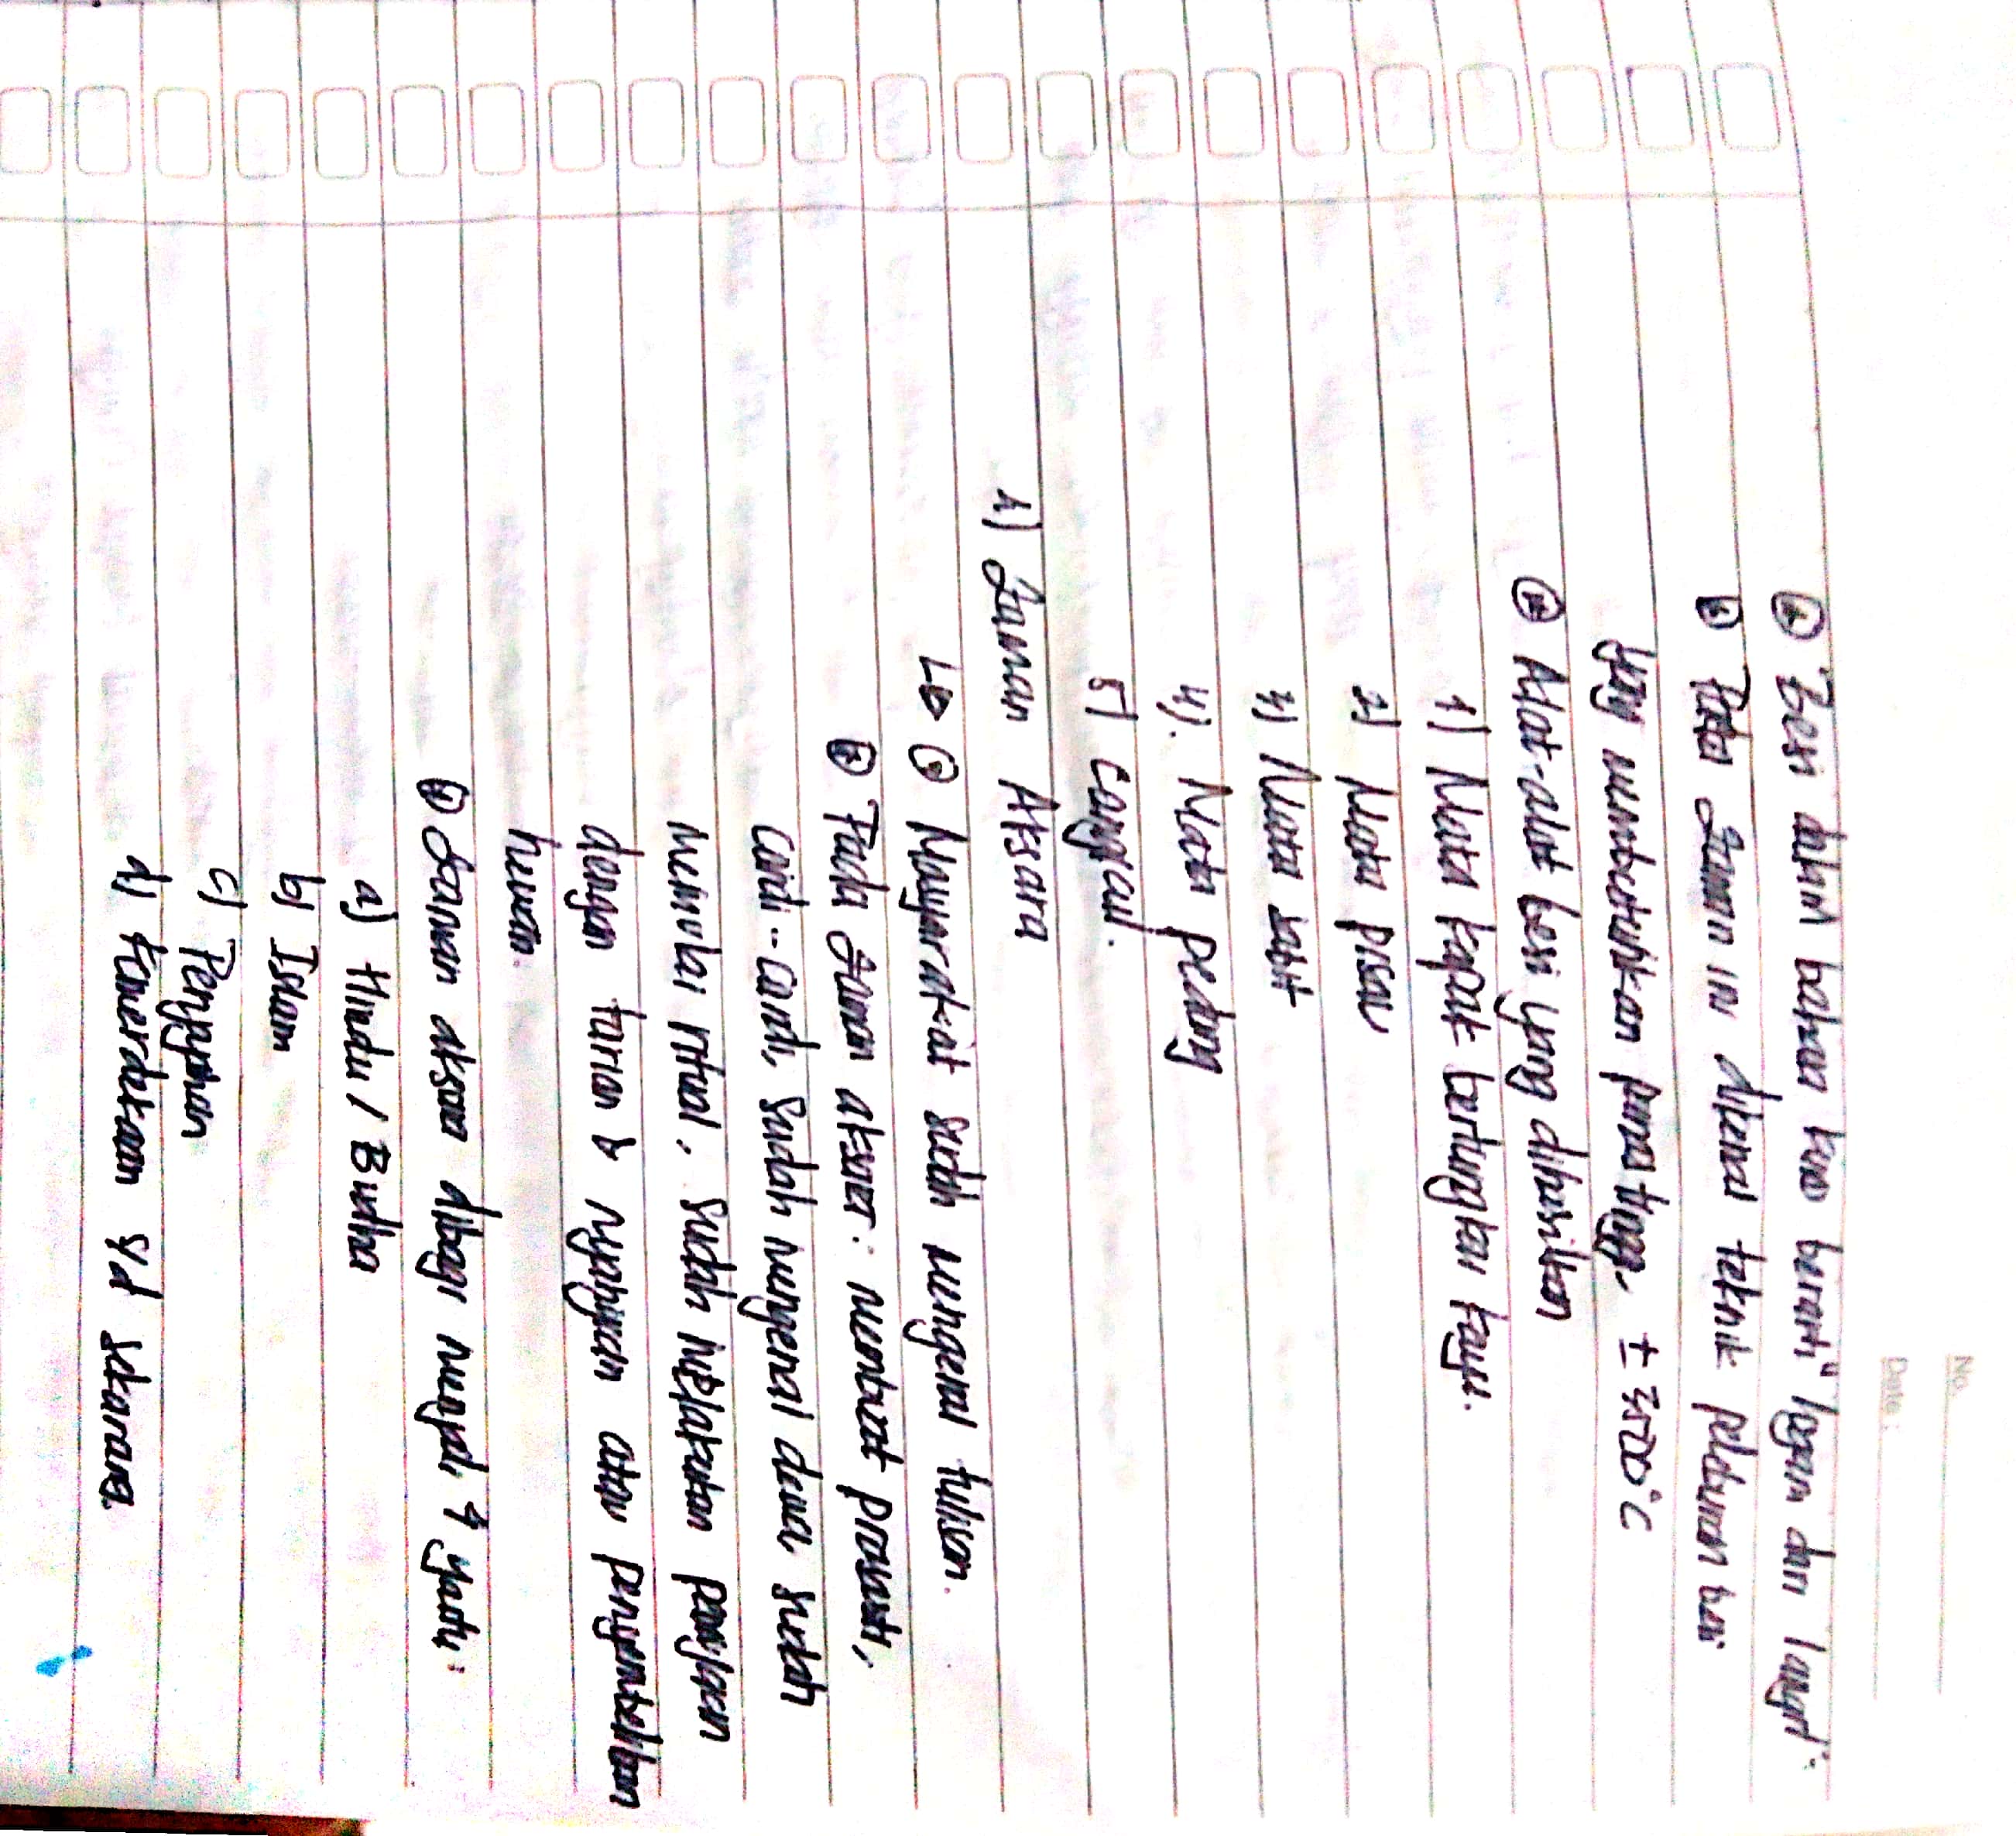 No.
Date :
Besi dalam bahan kuno berarti "logam dari langit".
Pada Zaman ini dikenal teknik peleburan besi
yang membutuhkan panas tinggi ± 3500°C
Alat-alat besi yang dihasilkan
1) Mata kapak bertungkai kayu.
2) Mata pisau
3) Mata sabit
4). Mata pedang
5) Cangcul.
Zaman Aksara
Masyarakat sudah mengenal tulisan.
Pada zaman aksara : membuat prasasti,
candi-candi, sudah mengenal dewa sudah
memulai ritual, sudah melakukan
dengan tarian & nyanyian atau penyembelihan
hewan.
Zaman aksara dibagi menjadi 4 yaitu :
a) Hindu / Budha
b) Islam
c) Penjajahan
d) Kemerdekaan s/d sekarang.